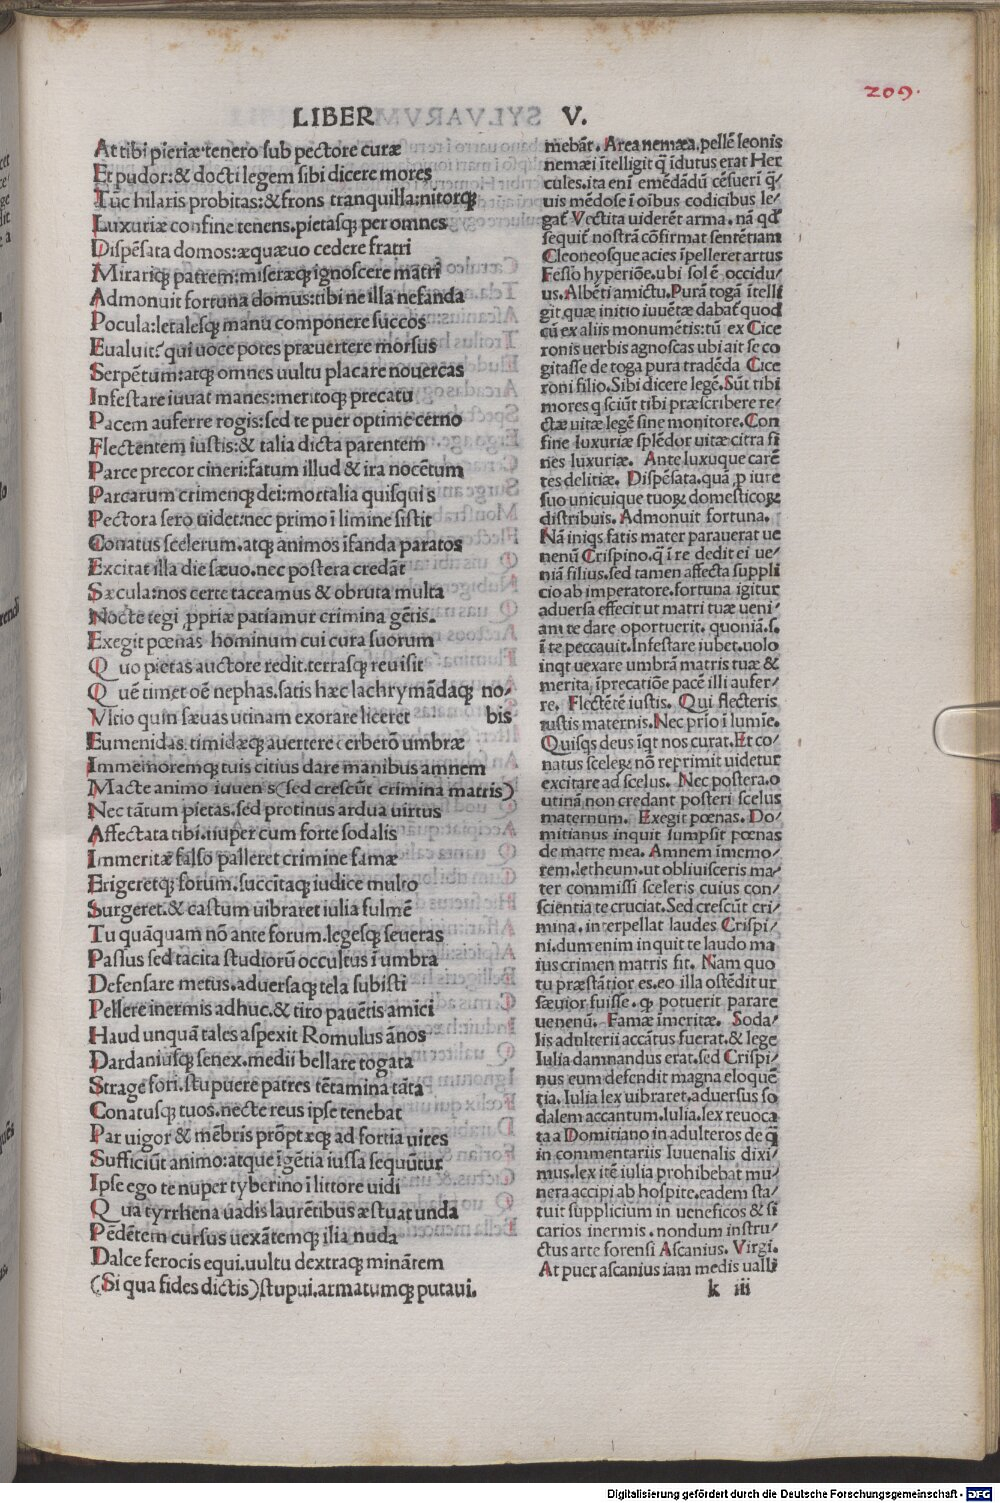 209.
LIBER V.
At tibi pieriæ tenero sub pectore curæ
Et pudor:& docti legem sibi dicere mores
Tūc hilaris probitas:& frons tranquilla:nitorqȝ
Luxuriæ confine tenens.pietasqȝ per omnes
Dispēsata domos:æquæuo cedere fratri
Mirariqȝ patrem:miseræqȝ ignoscere matri
Admonuit fortuna domus:tibi ne illa nefanda
Pocula:letalesqȝ manu componere succos
Eualuit? qui uoce potes præuertere morsus
Serpētum:atqȝ omnes uultu placare nouercas
Infestare iuuat manes:meritoqȝ precatu
Pacem auferre rogis:sed te puer optime cerno
Flectentem iustis:& talia dicta parentem
Parce precor cineri:fatum illud & ira nocētum
Parcarum crimenqȝ dei:mortalia quisquis
Pectora sero uidet:nec primo ī limine sistit
Conatus scelerum.atqȝ animos īfanda paratos
Excitat illa die sæuo.nec postera credāt
Sæcula:nos certe taceamus & obruta multa
Nocte tegi ꝓpriæ patiamur crimina gētis.
Exegit pœnas hominum cui cura suorum
Quo pietas auctore redit.terrasqȝ reuisit
Quē timet oē nephas.satis hæc lachrymādaqȝ no-
Vltio quin sæuas utinam exorare liceret bis
Eumenidas.timidæqȝ auertere cerberō umbræ
Immemoremqȝ tuis citius dare manibus amnem
Macte animo iuuenis(sed crescūt crimina matris)
Nec tātum pietas.sed protinus ardua uirtus
Affectata tibi.nuper cum forte sodalis
Immeritæ falso palleret crimine famæ
Erigeretqȝ forum.succītaqȝ iudice multo
Surgeret.& castum uibraret iulia fulmē
Tu quāquam nō ante forum.legesqȝ seueras
Passus sed tacita studiorū occultus ī umbra
Defensare metus.aduersaqȝ tela subisti
Pellere inermis adhuc.& tiro pauētis amici
Haud unquā tales aspexit Romulus ānos
Dardaniusqȝ senex.medii bellare togata
Strage fori.stupuere patres tētamina tāta
Conatusqȝ tuos.nec te reus ipse tenebat
Par uigor & mēbris prōptæqȝ ad fortia uires
Sufficiūt animo:atque īgētia iussa sequūtur
Ipse ego te nuper tyberino ī littore uidi
Qua tyrrhena uadis laurētibus æstuat unda
Pēdētem cursus uexātemqȝ ilia nuda
Dalce ferocis equi.uultu dextraqȝ minātem
(Si qua fides dictis)stupui.armatumqȝ putaui.
mebāt. Area nemæa.pellē leonis
nemæi ītelligit q̄ īdutus erat Her
cules.ita enī emēdādū cēsuerī q̄/
uis mēdose ī oībus codicibus le/
gat̄ Vectita uiderēt arma. nā qd̄
sequit̄ nostrā cōfirmat sentētiam
Cleoneosque acies īpelleret artus
Fesso hyperiōe.ubi sol ē occidu/
us.Albēti amictu.Purā togā ītelli
git.quæ initio iuuētæ dabat̄ quod
cū ex aliis monumētis:tū ex Cice
ronis uerbis agnoscas ubi ait se co
gitasse de toga pura tradēda Cice
roni filio.Sibi dicere legē.Sūt tibi
mores q sciūt tibi præscribere re/
ctæ uitæ legē sine monitore.Con
fine luxuriæ splēdor uitæ citra fi
nes luxuriæ. Ante luxuque carē
tes delitiæ. Dispēsata.qua ꝓ iure
suo unicuique tuoꝝ domesticoꝝ
distribuis. Admonuit fortuna.
Nā iniqs fatis mater parauerat ue
nenū Crispino.q̄ ī re dedit ei ue/
niā filius.sed tamen affecta suppli
cio ab imperatore.fortuna igitur
aduersa effecit ut matri tuæ ueni/
am te dare oportuerit. quoniā.s.
ī te peccauit.Infestare iubet.uolo
inqt uexare umbrā matris tuæ &
merita īprecatiōe pacē illi aufer/
re. Flectētē iustis. Qui flecteris
iustis maternis.Nec prio ī lumīe.
Quisqs deus īqt nos curat.Et co/
natus sceleꝝ nō reprimit uidetur
excitare ad scelus. Nec postera.o
utinā non credant posteri scelus
maternum. Exegit pœnas. Do/
mitianus inquit sumpsit pœnas
de matre mea. Amnem īmemo/
rem.letheum.ut obliuisceris ma/
ter commissi sceleris cuius con/
scientia te cruciat.Sed crescūt cri/
mina.interpellat laudes Crispi/
ni.dum enim inquit te laudo ma
ius crimen matris fit. Nam quo
tu præstātior es.eo illa ostēditur
sæuior fuisse. qꝫ potuerit parare
uenenū. Famæ īmeritæ. Soda/
lis adulterii accātus fuerat.& lege
Iulia damnandus erat.sed Crispi/
nus eum defendit magna eloquē
tia. Iulia lex uibraret.aduersus so
dalem accantum.Iulia.lex reuoca
ta a Domitiano in adulteros de q̄
in commentariis Iuuenalis dixi/
mus.lex itē iulia prohibebat mu/
nera accipi ab hospite.eadem sta/
tuit supplicium in ueneficos & si
carios inermis.nondum instru/
ctus arte forensi Ascanius. Virgi.
At puer ascanius iam medis ualli
k iii
Digitalisierung gefördert durch die Deutsche Forschungsgemeinschaft - DFG